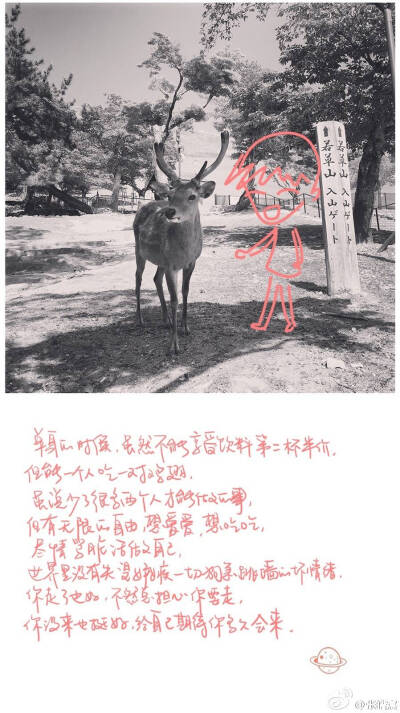 若草山 入山ゲート
若草山 入山ゲート
单身的时候,虽然不能享受饮料第二杯半价,
但能一个人吃一对鸡翅.
虽说少了很多两个人才能做的事,
但有无限的自由,想爱爱,想吃吃,
尽情 生活做自己,
世界里没有失望 一切狗急跳墙的坏情绪.
你走了也好,不然总担心你要走,
你没来也挺好,给自己期待你多久会来.